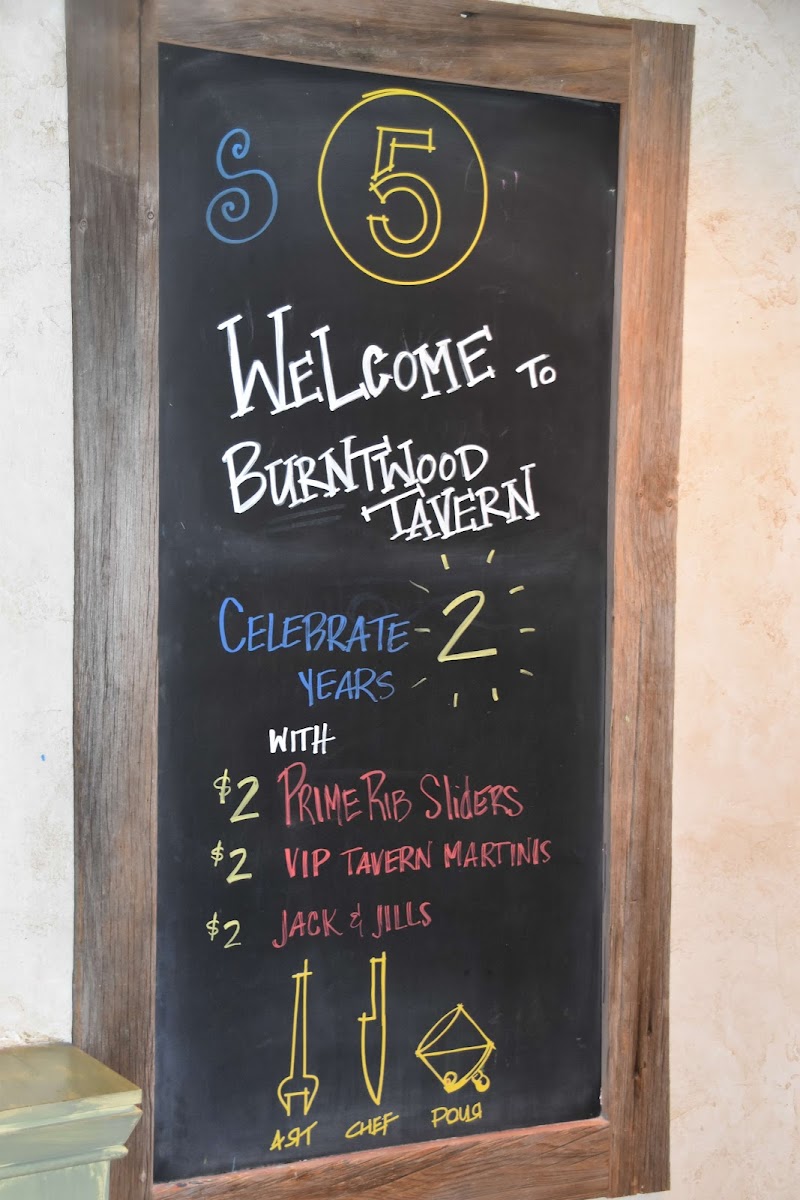 S 5
WELCOME TO
BURNTWOOD
TAVERN
CELEBRATE 2
YEARS
WITH
$2 PRIME RIB SLIDERS
$2 VIP TAVERN MARTINIS
$2 JACK & JILLS
AЯT CHEF POUЯ